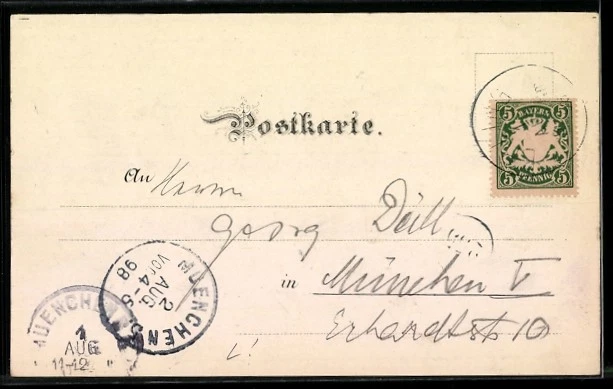 Postkarte.
5 BAYERN 5
5 PFENNIG 5
An Herrn
Georg Döll
in München V
Erhardtstr 10
MUENCHEN
2
AUG.
VOR. 4-5
98
MUENCHEN
1
AUG
11-12